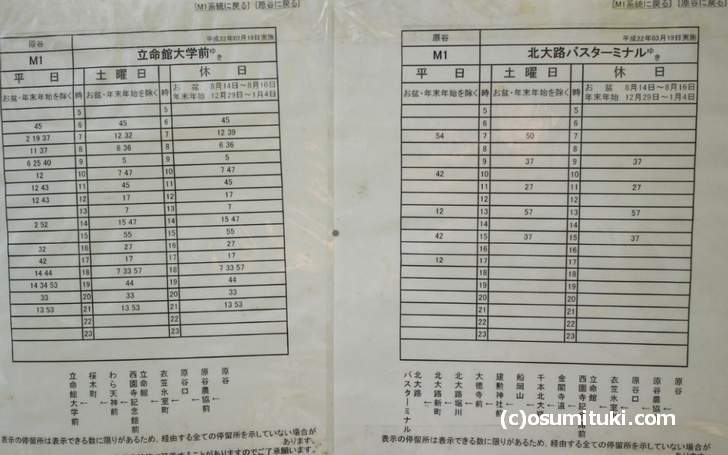 [M1系統に戻る] [原谷に戻る]
原谷 平成22年03月19日実施
M1 立命館大学前ゆき
平 日 土 曜 日 休 日
お盆・年末年始を除く 時 お盆・年末年始を除く 時 お盆 8月14日～8月16日
年末年始 12月29日～1月4日
5 5
45 6 45 6 45
2 19 37 7 12 32 7 12 39
11 37 8 6 36 8 6 36
6 25 40 9 5 9 5
12 10 7 47 10 7 47
12 43 11 45 11 45
12 43 12 17 12 17
13 7 13 7
2 52 14 15 47 14 15 47
15 55 15 55
32 16 27 16 27
42 17 17 17 17
14 44 18 7 33 57 18 7 33 57
14 34 53 19 44 19 44
33 20 33 20 33
13 53 21 13 53 21 13 53
22 22
23 23
原谷
原谷農協前
←
原谷口
←
衣笠氷室町
←
立命館
西園寺記念館前
←
わら天神前
←
桜木町
←
立命館大学前
表示の停留所は表示できる数に限りがあるため、経由する全ての停留所を示していない場合が
あります。
[M1系統に戻る] [原谷に戻る]
原谷 平成22年03月19日実施
M1 北大路バスターミナルゆき
平 日 土 曜 日 休 日
お盆・年末年始を除く 時 お盆・年末年始を除く 時 お盆 8月14日～8月16日
年末年始 12月29日～1月4日
5 5
6 6
54 7 50 7
8 8
9 37 9 37
42 10 10
11 27 11 27
12 12
12 13 57 13 57
14 14
42 15 37 15 37
16 16
12 17 17
18 18
19 19
20 20
21 21
22 22
23 23
原谷
原谷農協前
←
原谷口
←
衣笠氷室町
←
立命館
西園寺記念館前
←
金閣寺道
←
千本北大路
←
船岡山
←
建勲神社前
←
大徳寺前
←
北大路堀川
←
北大路新町
←
北大路
バスターミナル
(c)osumituki.com
表示の停留所は表示できる数に限りがあるため、経由する全ての停留所を示していない場合が
あります。